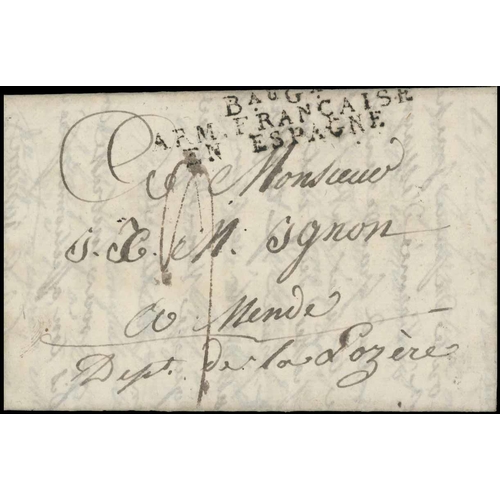 BAU G
ARM. FRANÇAISE
EN ESPAGNE
A Monsieur
J. X. M. Ignon
A Mende
Dept. de la Lozère